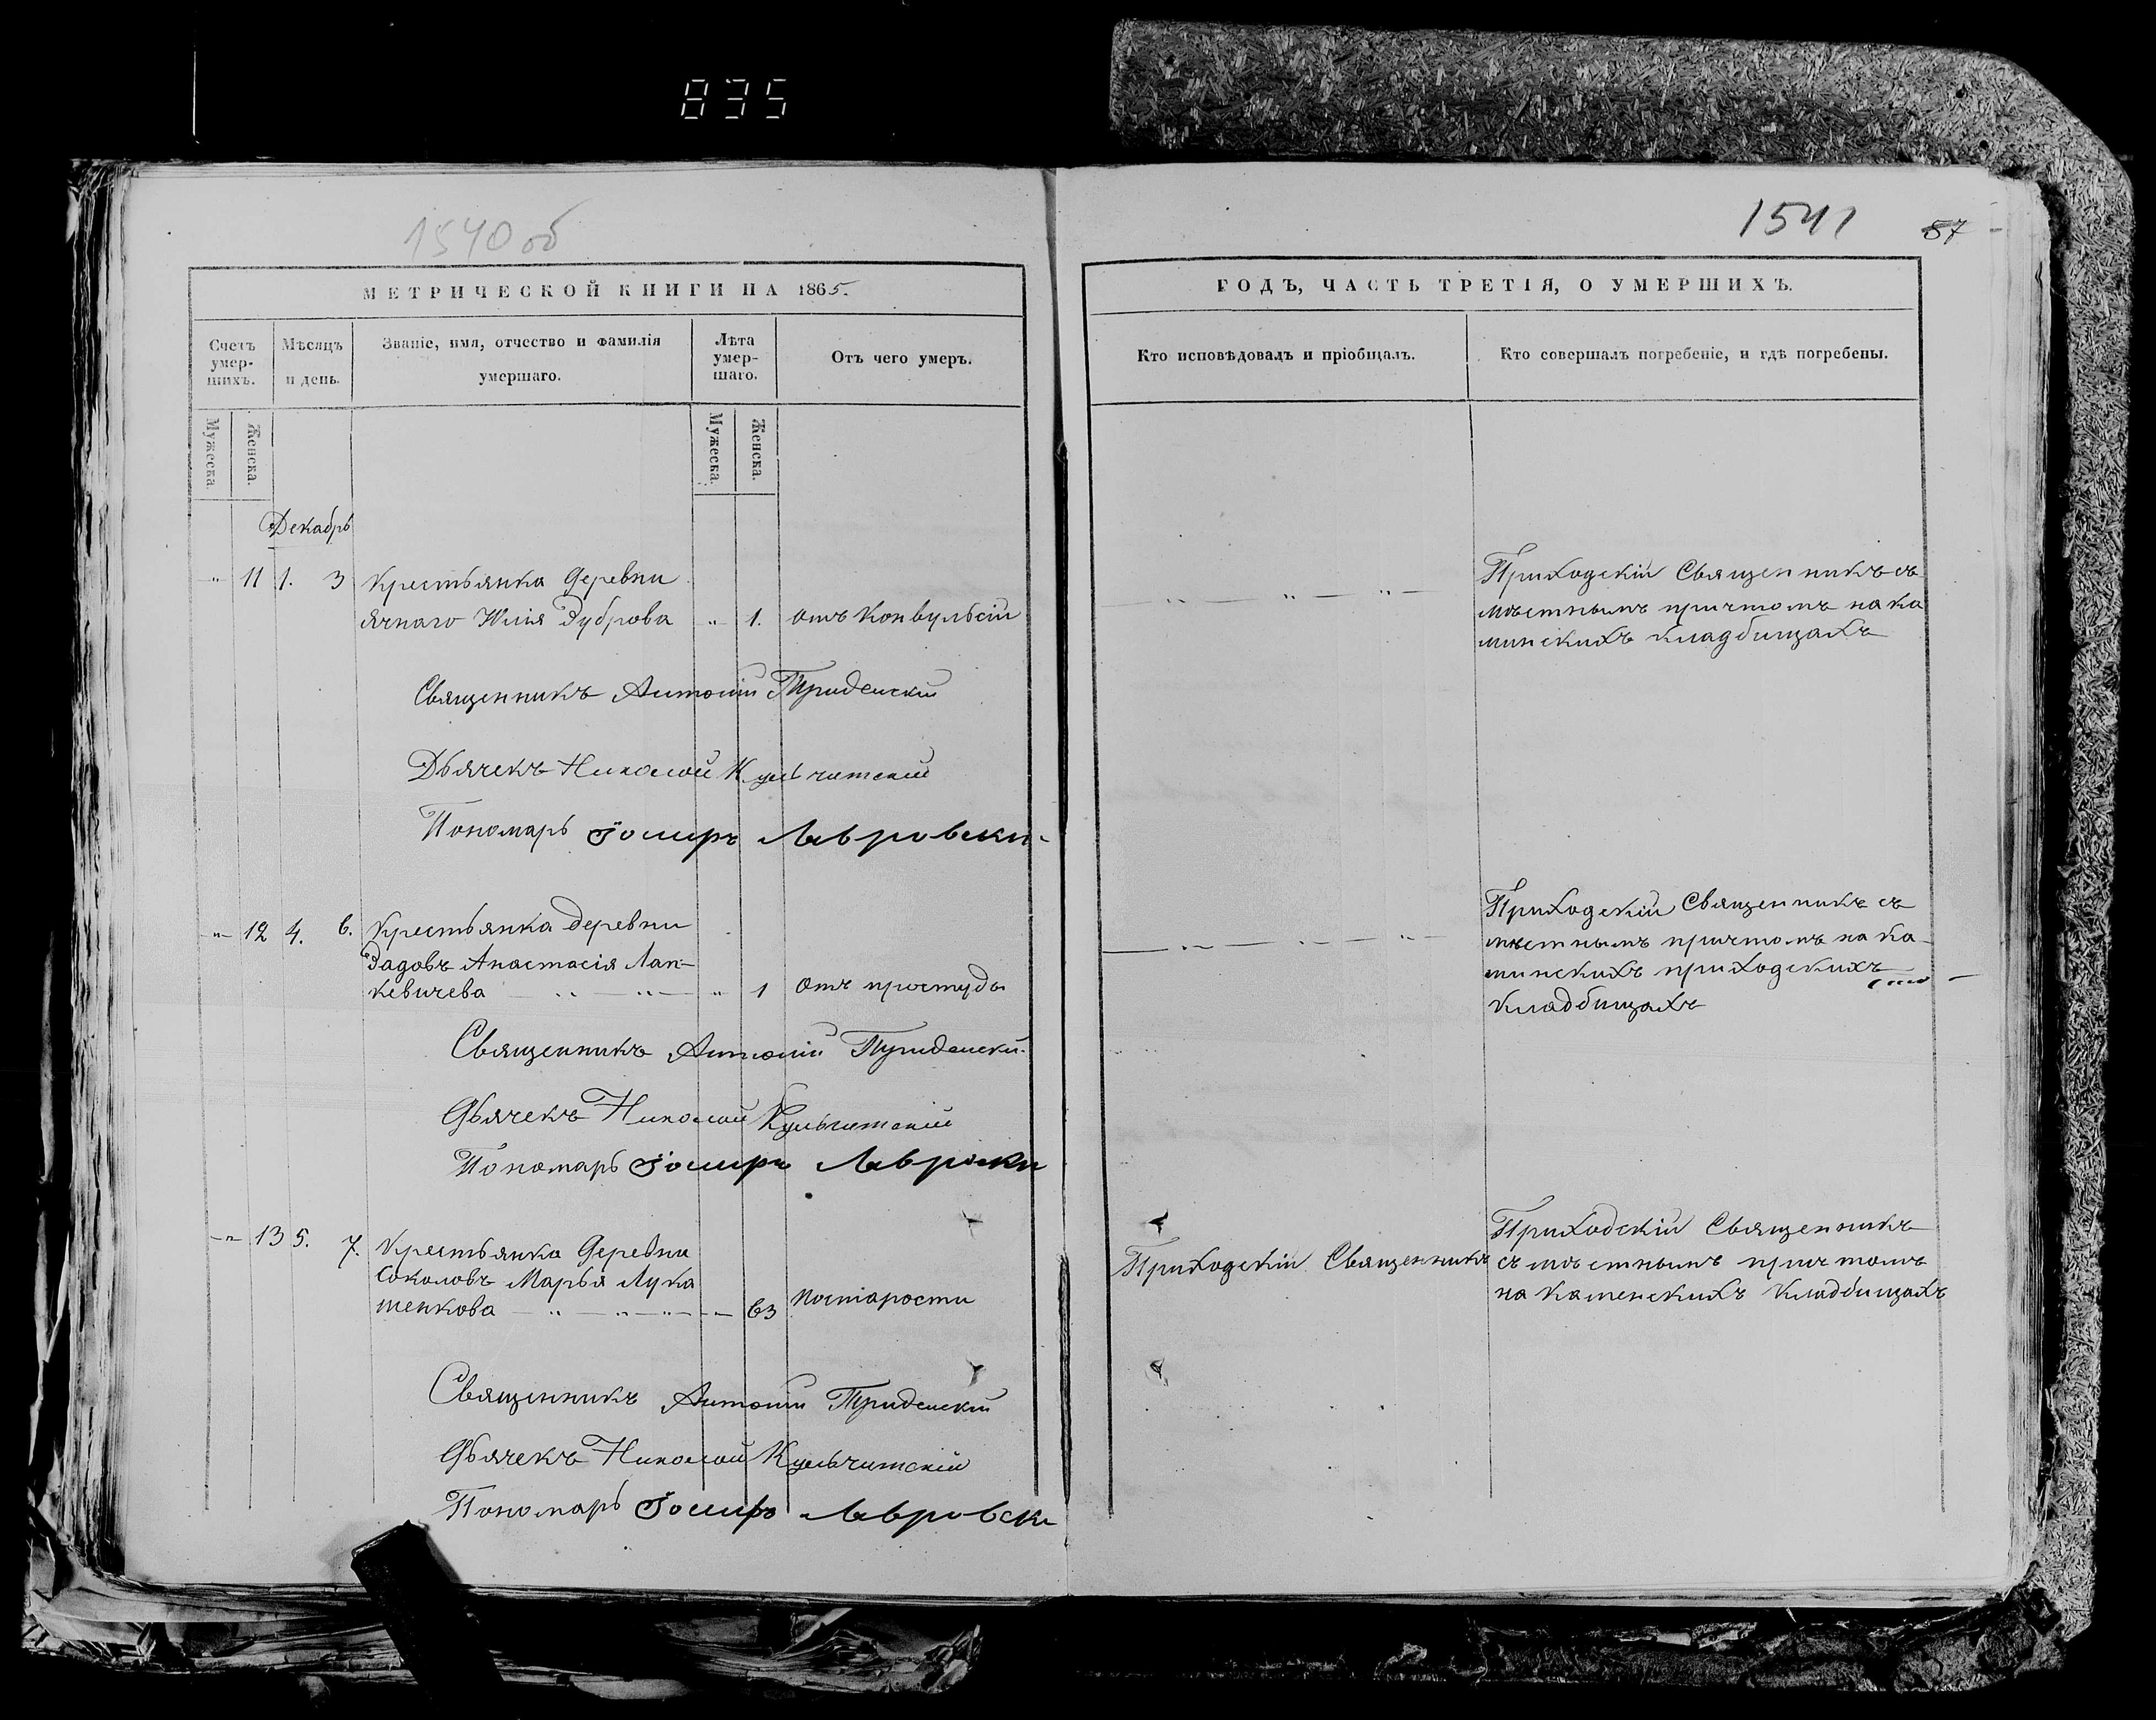 835
1540 об
1541
57
МЕТРИЧЕСКОЙ КНИГИ НА 1865.
Счетъ умер- шихъ.
Мѣсяцъ и день.
Званіе, имя, отчество и фамилія умершаго.
Лѣта умер- шаго.
Отъ чего умеръ.
Мужеска.
Женска.
Мужеска.
Женска.
Декабрь
11 1. 3 Крестьянка деревни
Ячнаго Юлія Дуброва " 1. отъ конвульсіи
Священникъ Антоній
Дьячекъ Николай Кульчитскій
Пономарь Іосифъ Лавровски
12 4. 6. Крестьянка деревни
Задовъ Анастасія Лап-
кевичева " 1 Отъ простуды
Священникъ Антоній
Дьячекъ Николай Кульчитскій
Пономарь Іосифъ Лавровски
13 5. 7. Крестьянка деревни
Соколовъ Марья Лука
шенкова 63 постарости
Священникъ Антоній
Дьячекъ Николай Кульчитскій
Пономарь Іосифъ Лавровски
ГОДЪ, ЧАСТЬ ТРЕТІЯ, О УМЕРШИХЪ.
Кто исповѣдовалъ и пріобщалъ.
Кто совершалъ погребеніе, и гдѣ погребены.
Приходскій Священникъ съ
мѣстнымъ причтомъ на ка
минскихъ кладбищахъ
Приходскій Священникъ съ
мѣстнымъ причтомъ на ка-
минскихъ приходскихъ
кладбищахъ
Приходскій Священникъ
Приходскій Священникъ
съ мѣстнымъ причтомъ
на каменскихъ кладбищахъ